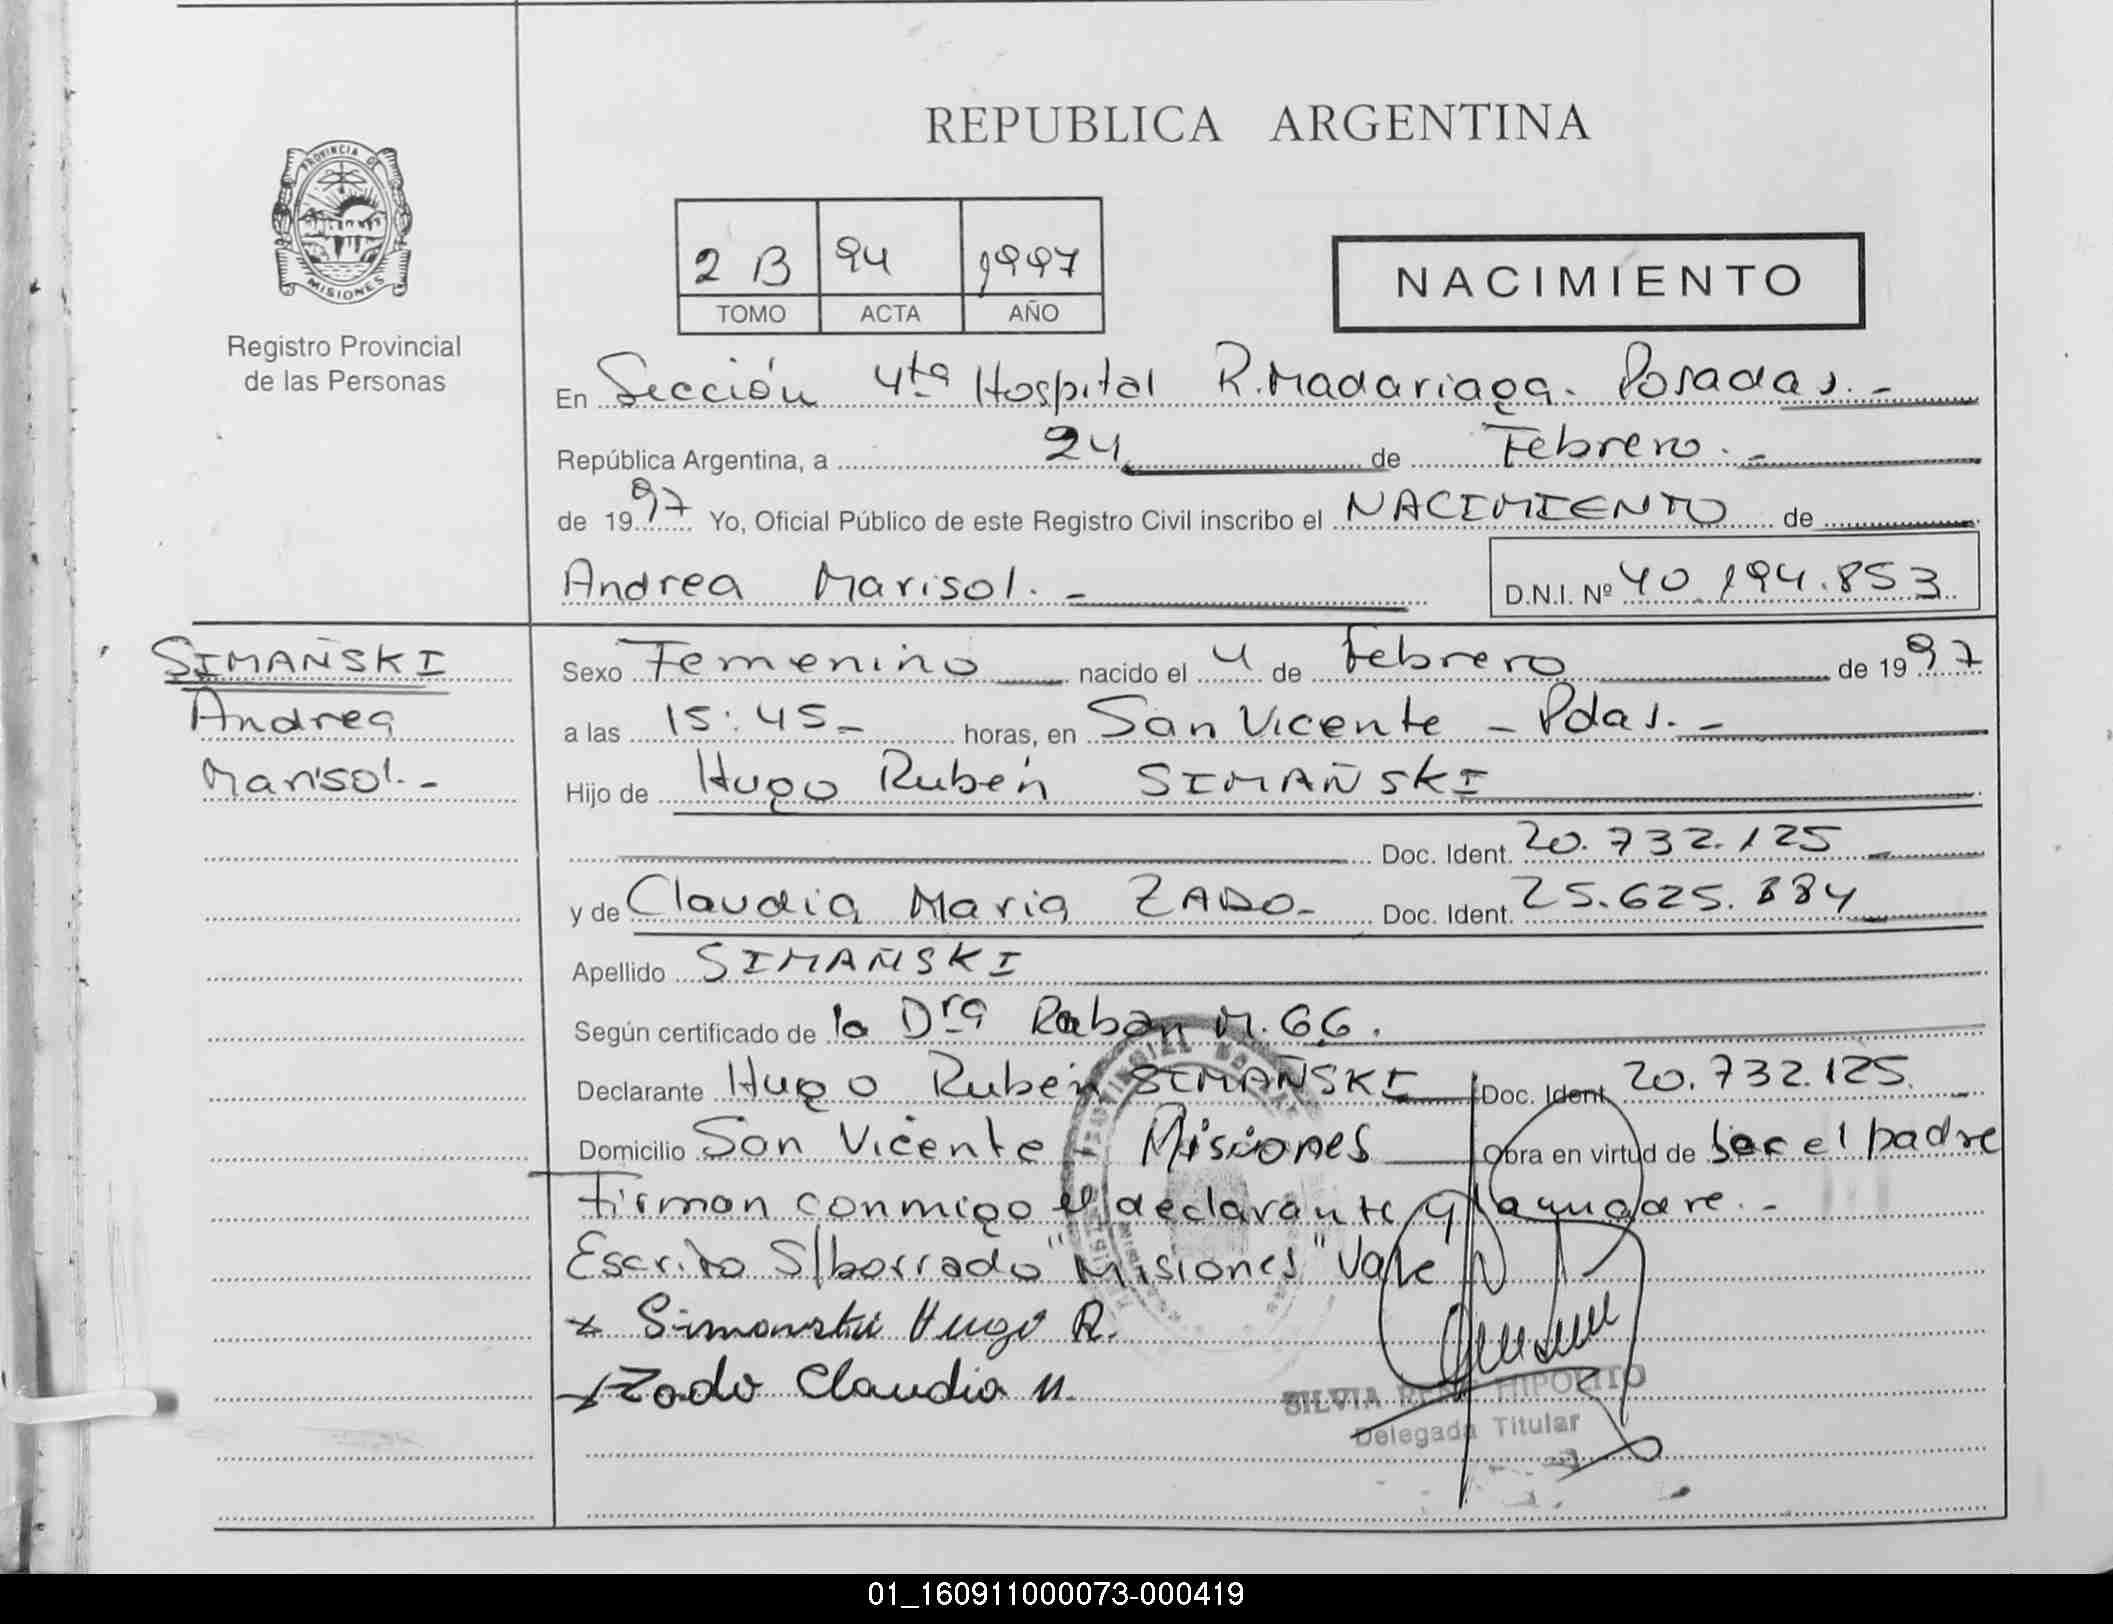 REPUBLICA ARGENTINA
PROVINCIA DE
MISIONES
Registro Provincial
de las Personas
2 B 94 1997
TOMO ACTA AÑO
NACIMIENTO
En Sección 4ta Hospital R. Madariaga. Posadas. -
República Argentina, a 24 de Febrero. -
de 1997 Yo, Oficial Público de este Registro Civil inscribo el NACIMIENTO de
Andrea Marisol. -
D.N.I. Nº 40.194.853
SIMAÑSKI
Andrea
Marisol. -
Sexo Femenino nacido el 4 de Febrero de 1997
a las 15:45- horas, en San Vicente - Pdas. -
Hijo de Hugo Rubén SIMAÑSKI
Doc. Ident. 20.732.125
y de Claudia Maria ZADO- Doc. Ident. 25.625.884
Apellido SIMAÑSKI
Según certificado de la Dra Raban M. 66.
Declarante Hugo Rubén SIMAÑSKI Doc. Ident. 20.732.125
Domicilio San Vicente Misiones Obra en virtud de ser el padre
Firman conmigo el declarante y la madre. -
Escrito S/borrado "Misiones" Vale
x Simanski Hugo R.
x Zado Claudia M.
SILVIA HIPOLITO
Delegada Titular
01_160911000073-000419